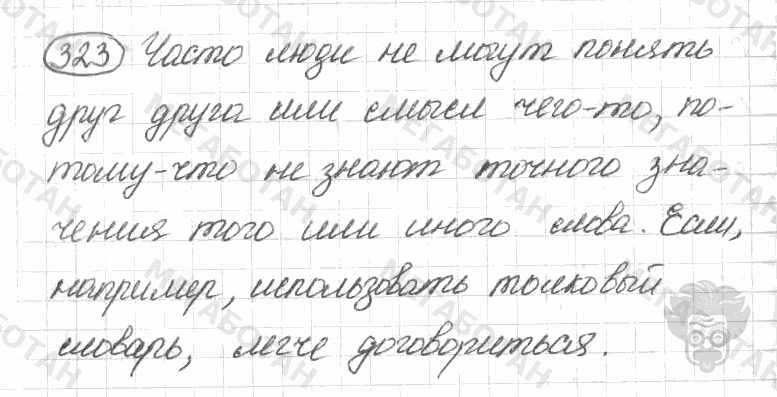 323 Часто люди не могут понять
друг друга или смысл чего-то, по-
тому-что не знают точного зна-
чения того или иного слова. Если,
например, использовать толковый
словарь, легче договориться.
МЕГАБОТАН